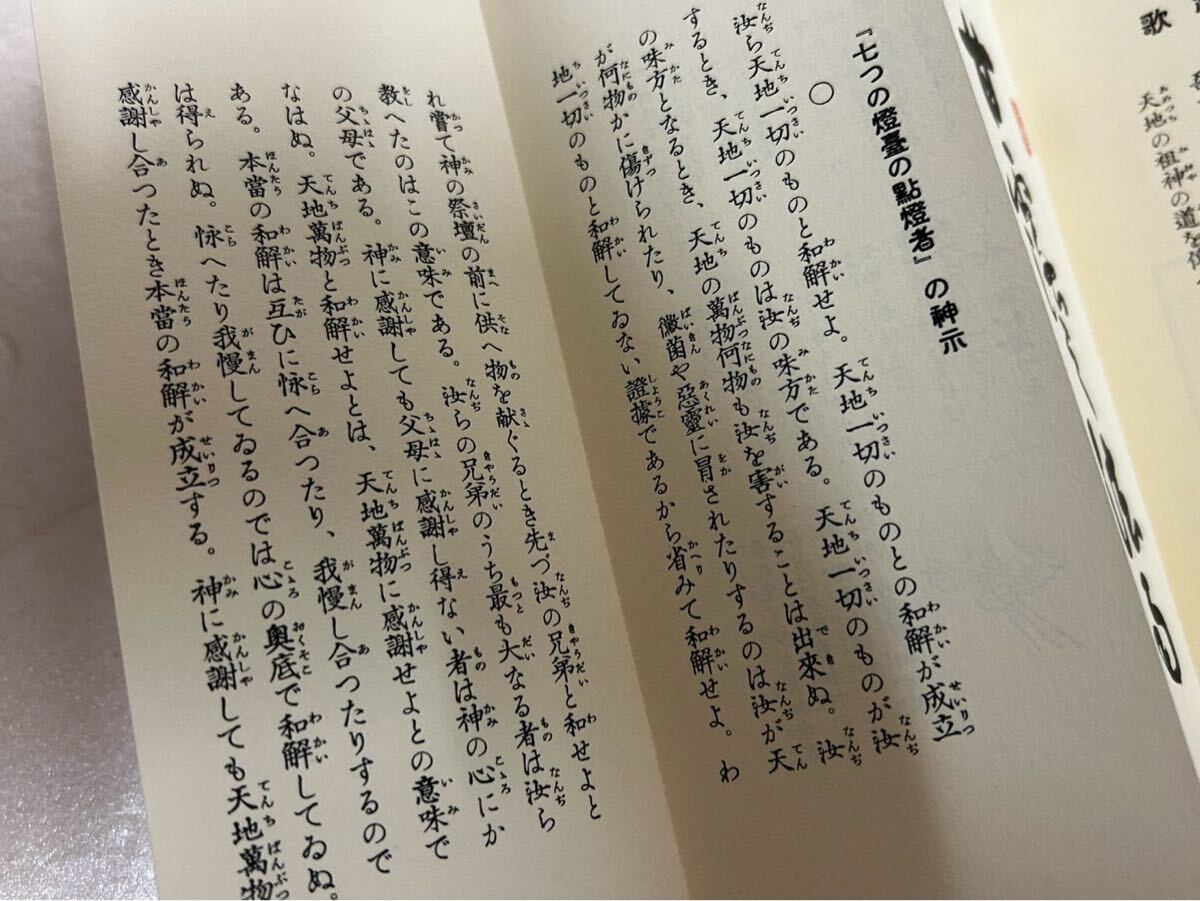 歌
天地の祖神の道を
『七つの燈臺の點燈者』の神示
○
汝ら天地一切のものと和解せよ。天地一切のものとの和解が成立
するとき、天地一切のものは汝の味方である。天地一切のものが汝
の味方となるとき、天地の萬物何物も汝を害することは出來ぬ。汝
が何物かに傷けられたり、黴菌や惡靈に冒されたりするのは汝が天
地一切のものと和解してゐない證據であるから省みて和解せよ。わ
れ嘗て神の祭壇の前に供へ物を献ぐるとき先づ汝の兄弟と和せよと
教へたのはこの意味である。汝らの兄弟のうち最も大なる者は汝ら
の父母である。神に感謝しても父母に感謝し得ない者は神の心にか
なはぬ。天地萬物と和解せよとは、天地萬物に感謝せよとの意味で
ある。本當の和解は互ひに怺へ合つたり、我慢し合つたりするので
は得られぬ。怺へたり我慢してゐるのでは心の奥底で和解してゐぬ。
感謝し合つたとき本當の和解が成立する。神に感謝しても天地萬物